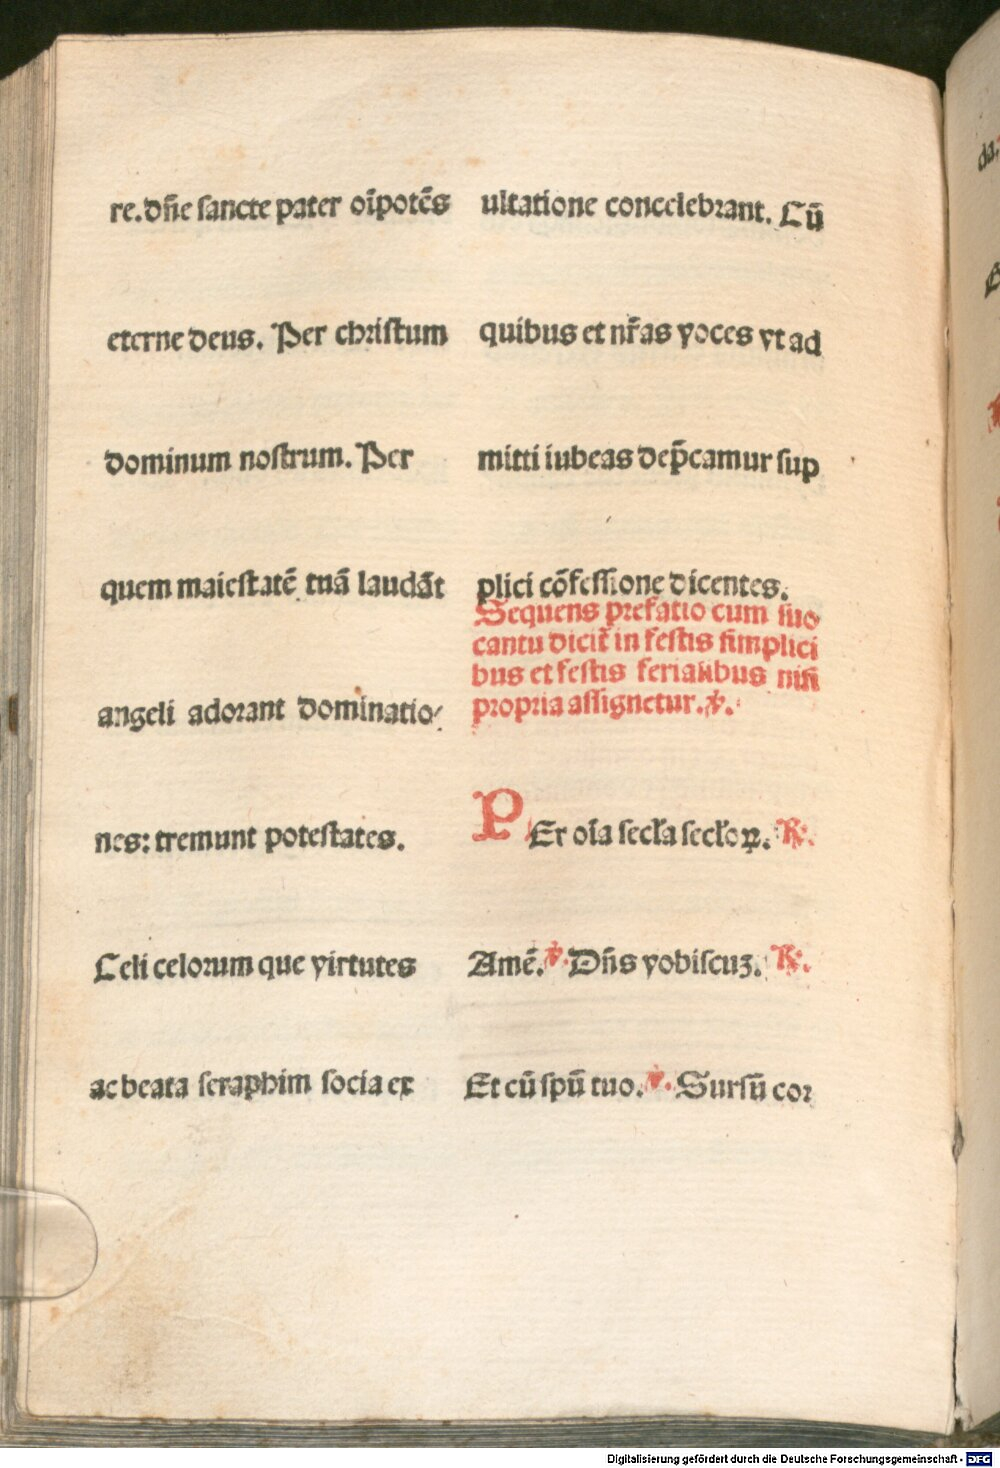 re. dñe sancte pater oĩpotẽs
eterne deus. Per christum
dominum nostrum. Per
quem maiestatẽ tuã laudãt
angeli adorant dominatio⸗
nes: tremunt potestates.
Celi celorum que virtutes
ac beata seraphim socia ex
ultatione concelebrant. Cũ
quibus et nr̃as voces vt ad
mitti iubeas dep̃camur sup
plici cõfessione dicentes.
Sequens prefatio cum suo
cantu dicit̃ in festis simplici
bus et festis ferialibus nisi
propria assignetur. ℣.
PEr oĩa secl̃a secl̃oꝝ. ℟.
Amẽ. ℣. Dñs vobiscuꝫ. ℟.
Et cũ spũ tuo. ℣. Sursũ cor
Digitalisierung gefördert durch die Deutsche Forschungsgemeinschaft - DFG